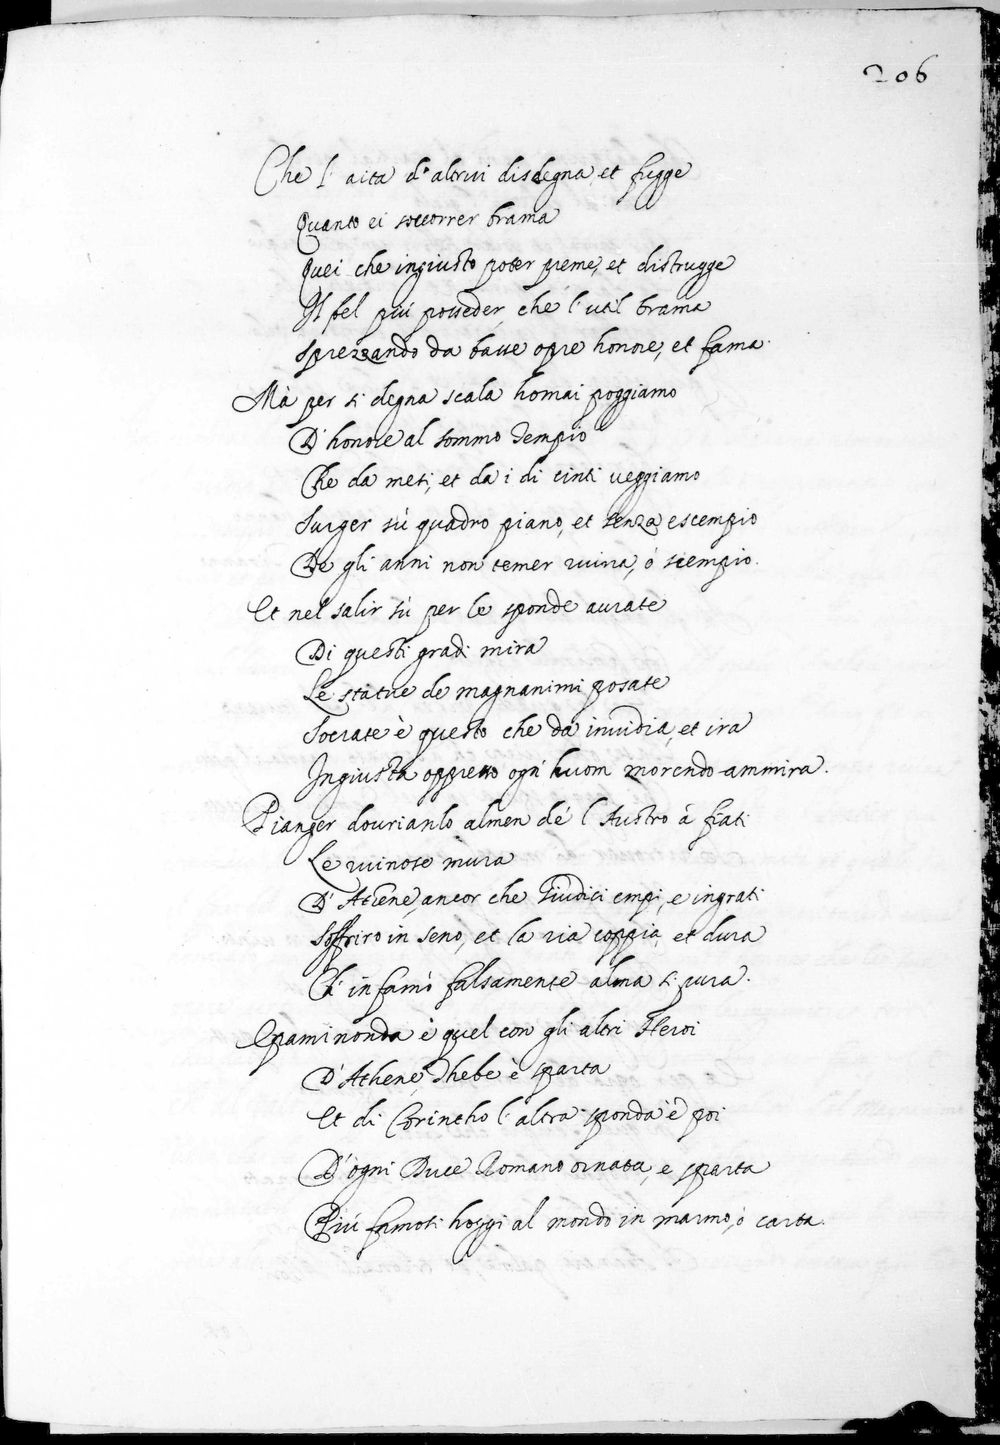 206
Che l'aita d'altrui disdegna, et fugge
Quanto ei soccorrer brama
Quei che ingiusto poter preme, et distrugge
Il bel più posseder, che l'util brama
Sprezzando da basse opre honore, et fama.
Mà per si degna scala homai poggiamo
D'honore al sommo Tempio
Che da meti, et da i di cinti veggiamo
Surger sù quadro piano, et senza escempio
De gli anni non temer ruina, ò scempio.
Et nel salir sù per le sponde aurate
Di questi gradi mira
Le statue de magnanimi posate
Socrate è questo che da invidia, et ira
Ingiusta oppresso ogn'huom morendo ammira.
Pianger dourianlo almen de l'Austro à fiati
Le ruinose mura
D'Athene, ancor che Giudici empi, e ingrati
Soffriro in seno, et la ria coppia, et dura
Ch'infamò falsamente alma si pura.
Epaminonda è quel con gli altri Heroi
D'Athene, Thebe è Sparta
Et di Corintho l'altra sponda è poi
D'ogni Duce Romano ornata, e sparta
Più famosi hoggi al mondo in marmo, ò carta.